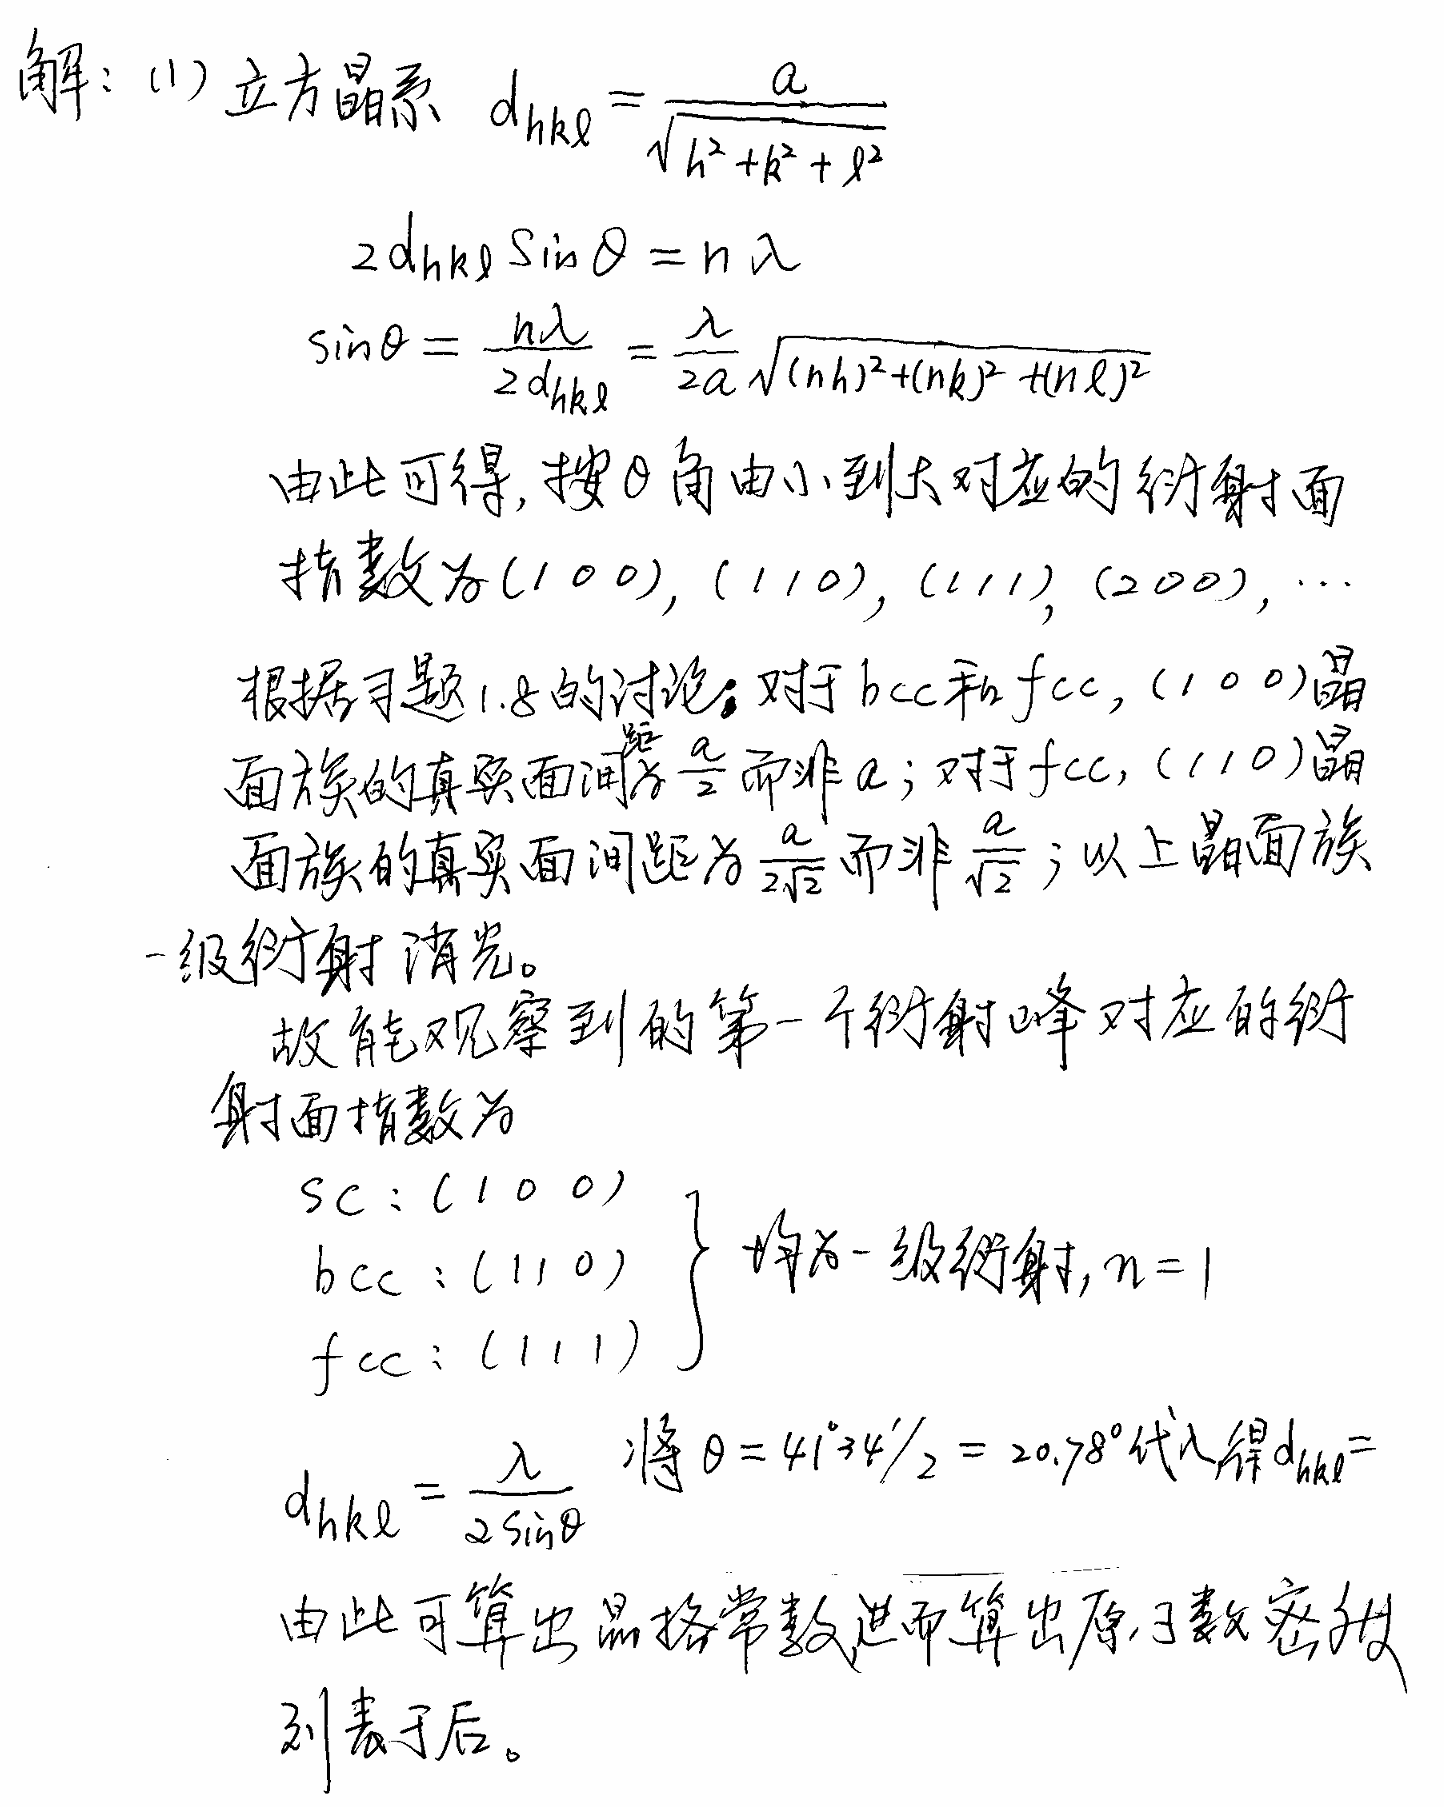 解：(1) 立方晶系 d_{hkl} = \frac{a}{\sqrt{h²+k²+l²}}
2d_{hkl} sinθ = nλ
sinθ = \frac{nλ}{2d_{hkl}} = \frac{λ}{2a} \sqrt{(nh)²+(nk)²+(nl)²}
由此可得，按θ角由小到大对应的衍射面
指数为(100), (110), (111), (200), …
根据习题1.8的讨论：对于bcc和fcc, (100)晶
面族的真实面间距为\frac{a}{2}而非a；对于fcc, (110)晶
面族的真实面间距为\frac{a}{2\sqrt{2}}而非\frac{a}{\sqrt{2}}；以上晶面族
一级衍射消光。
故能观察到的第一个衍射峰对应的衍
射面指数为
sc：(100)
bcc：(110)
fcc：(111)
} 均为一级衍射, n=1
d_{hkl} = \frac{λ}{2sinθ} 将θ=41°34′/2 = 20.78°代入,得d_{hkl}=
由此可算出晶格常数,进而算出原子数密度
列表于后。